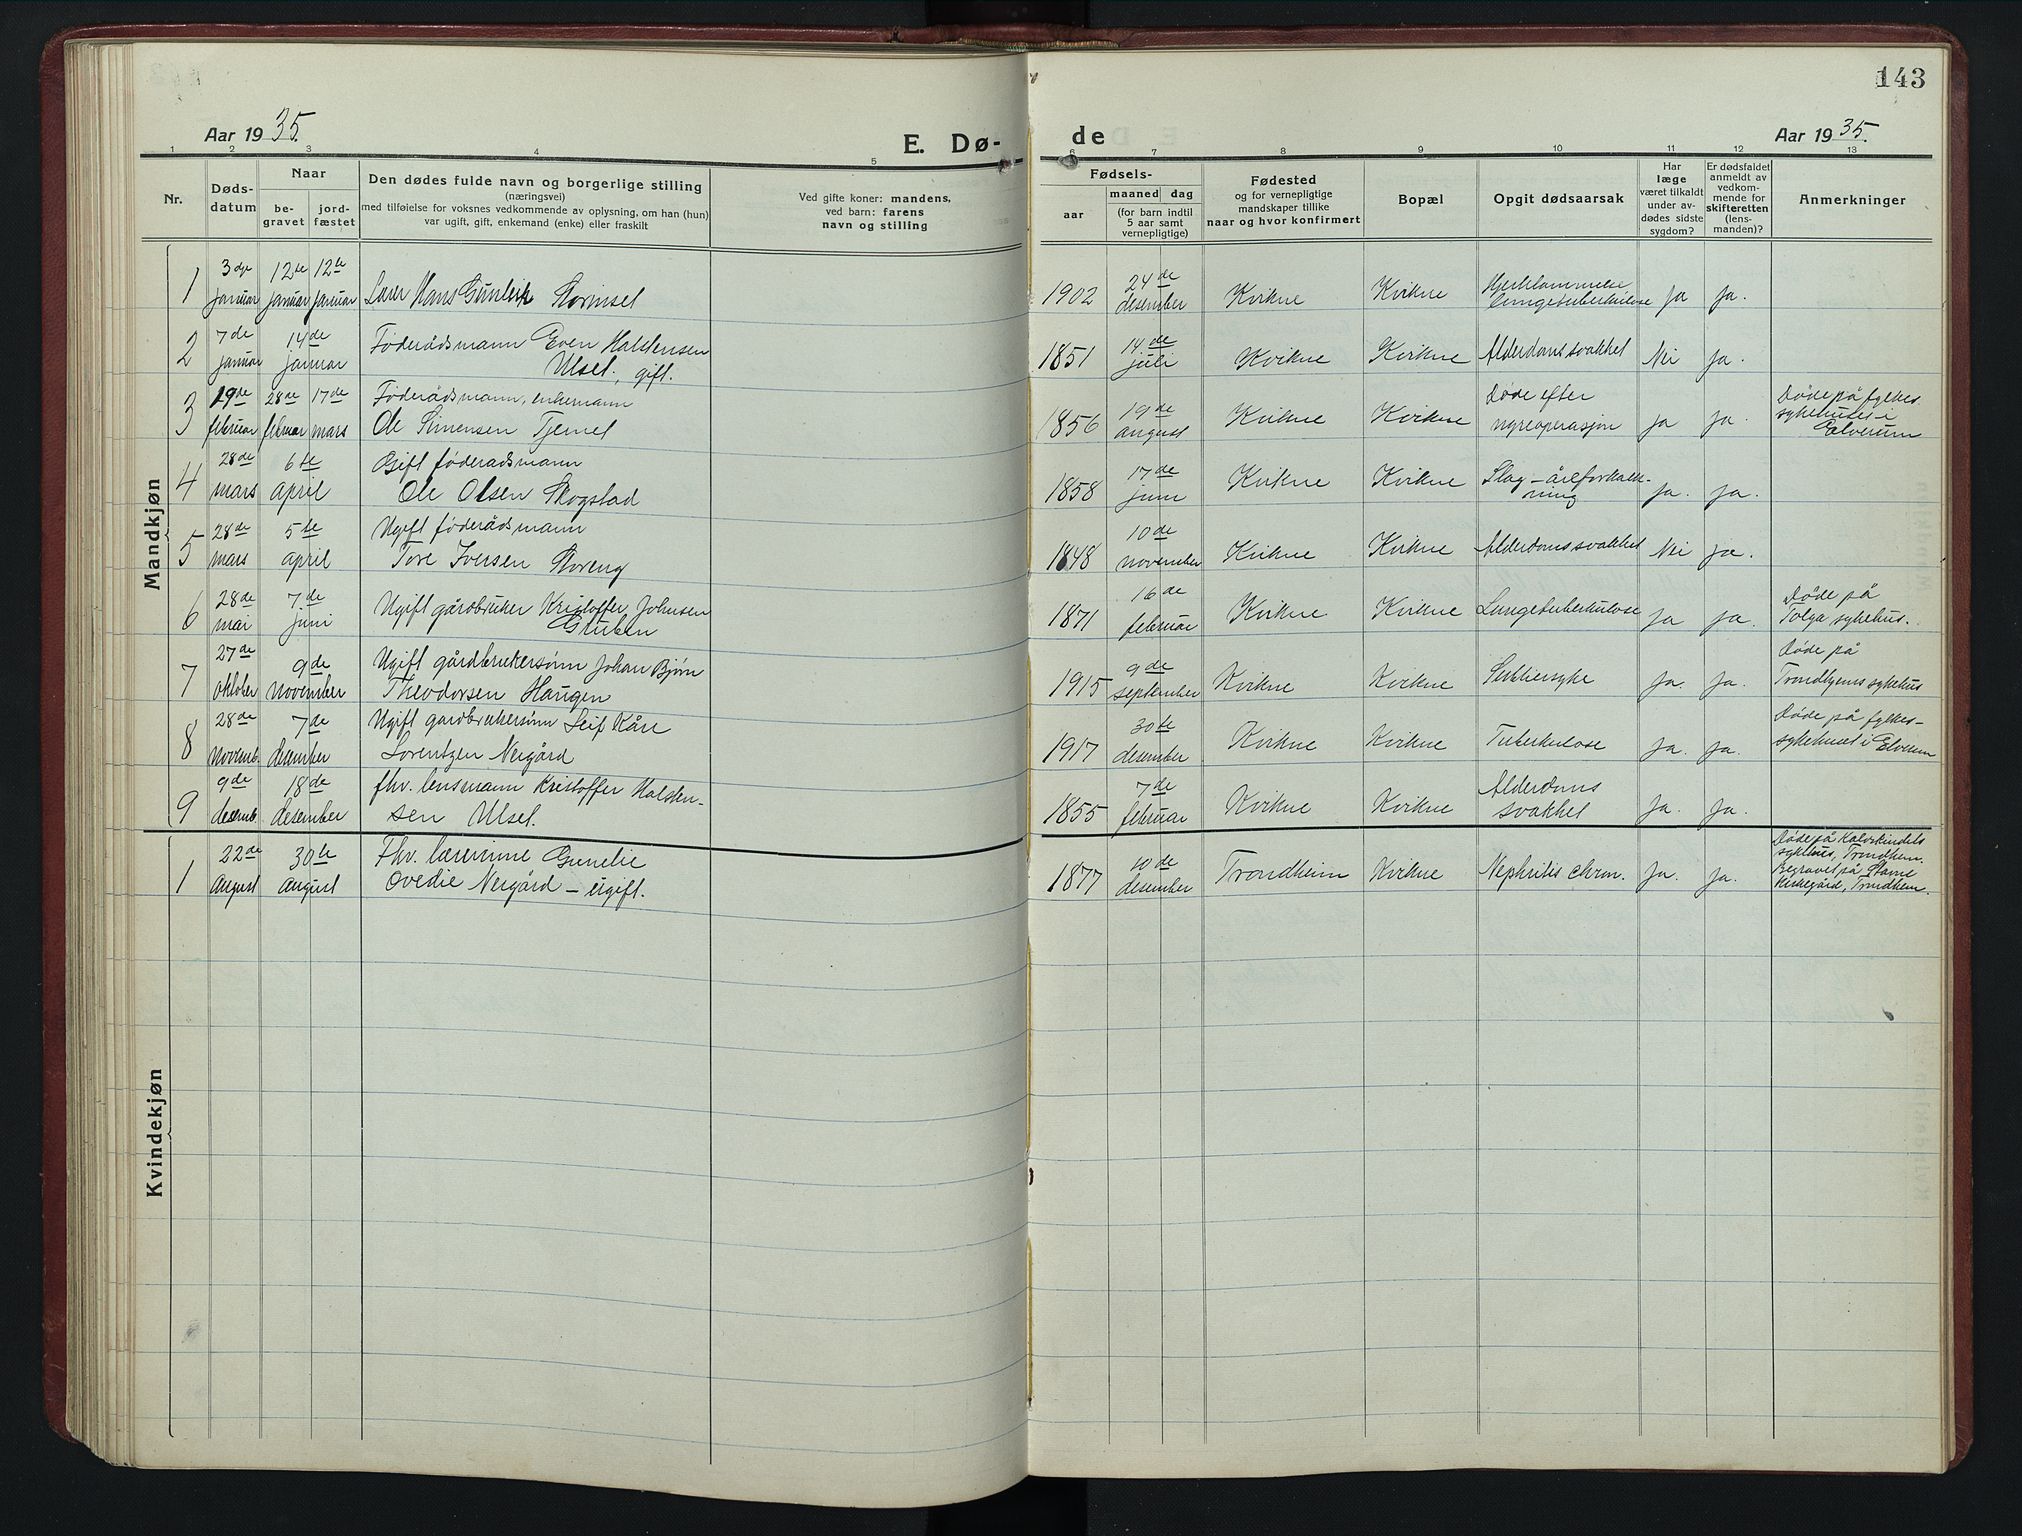 143
Aar 1935.
E. Dø-
de
Aar 1935.
1 2 3 4 5 6 7 8 9 10 11 12 13
Nr.
Døds-
datum
Naar
be-
gravet
jord-
fæstet
Den dødes fulde navn og borgerlige stilling
(næringsvei)
med tilføielse for voksnes vedkommende av oplysning, om han (hun)
var ugift, gift, enkemand (enke) eller fraskilt
Ved gifte koner: mandens,
ved barn: farens
navn og stilling
Fødsels-
aar
maaned dag
(for barn indtil
5 aar samt
vernepligtige)
Fødested
og for vernepligtige
mandskaper tillike
naar og hvor konfirmert
Bopæl
Opgit dødsaarsak
Har
læge
været tilkaldt
under av-
dødes sidste
sygdom?
Er dødsfaldet
anmeldt av
vedkom-
mende for
skifteretten
(lens-
manden)?
Anmerkninger
Mandkjøn
1 3dje januar 12te januar 12te januar Lærer Hans Gunleik Storinset 1902 24de desember Kvikne Kvikne Hjerklammelse Lungetuberkulose ja ja.
2 7de januar 14de januar Føderådsmann Even Halstensen
Ulset, gift. 1851 14de juli Kvikne Kvikne Alderdomssvakhet Nei ja.
3 19de februar 28de februar 17de mars Føderådsmann, enkemann
Ole Simensen Tjemet 1856 19de august Kvikne Kvikne Døde efter nyreoperasjon ja ja. Døde på fylkes-
sykehuset i
Elverum
4 28de mars 6te april Gift føderadsmann
Ole Olsen Skogstad 1858 17de juni Kvikne Kvikne Slag - åreforkalk-
ning ja. ja.
5 28de mars 5te april Ugift føderådsmann
Tore Iversen Storeng 1848 10de november Kvikne Kvikne Alderdomssvakhet Nei ja.
6 28de mai 7de juni Ugift gårdbruker Kristoffer Johnsen
Gruben 1871 16de februar Kvikne Kvikne Lungetuberkulose ja ja. Døde på
Tolga sykehus.
7 27de oktober 9de november Ugift gårdbrukersønn Johan Bjørn
Theodorsen Haugen 1915 9de september Kvikne Kvikne Sukkersyke ja. ja. Døde på
Trondhjems sykehus
8 28de novemb. 7de desember Ugift gardbrukersønn Leif Kåre
Lorentzen Nergård 1917 30te desember Kvikne Kvikne Tuberkulose ja. ja. Døde på fylkes-
sykehuset i Elverum
9 9de desemb. 18de desember fhv. lensmann Kristoffer Halsten-
sen Ulset. 1855 7de februar Kvikne Kvikne Alderdoms
svakhet ja. ja.
Kvindekjøn
1 22de August 30te August Fhv. lærerinne Gunelie
Ovedie Nergård - ugift. 1877 10de desember Trondheim Kvikne Nephritis chron. ja. ja. Døde på Kalvskindets
sykehus, Trondheim.
Begravet på Stavne
Kirkegård, Trondheim.